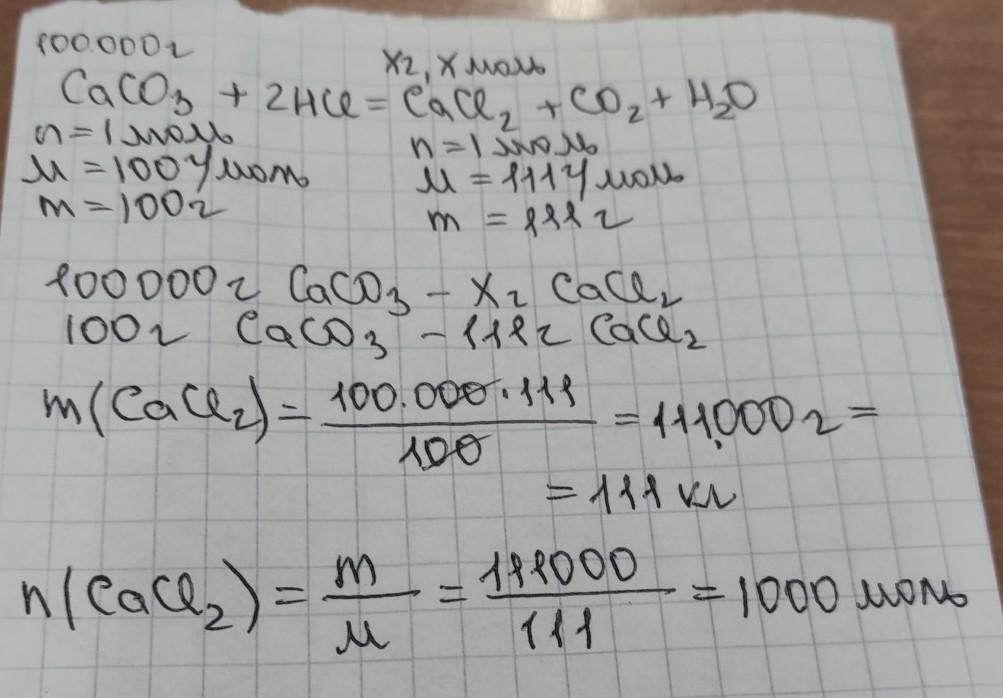 100.000г
xг, x моль
CaCO₃ + 2HCl = CaCl₂ + CO₂ + H₂O
n = 1 моль
n = 1 моль
M = 100 г/моль
M = 111 г/моль
m = 100г
m = 111 г
100000г CaCO₃ – xг CaCl₂
100г CaCO₃ – 111г CaCl₂
m(CaCl₂) = 100.000·111 / 100 = 111.000г =
= 111 кг
n(CaCl₂) = m / M = 111000 / 111 = 1000 моль